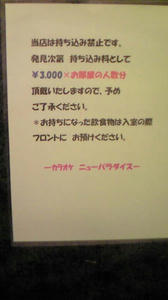 当店は持ち込み禁止です。
発見次第　持ち込み料として
￥3,000×お部屋の人数分
頂戴いたしますので、予め
ご了承ください。
＊お持ちになった飲食物は入室の際
フロントに　お預けください。
ーカラオケ　ニューパラダイスー